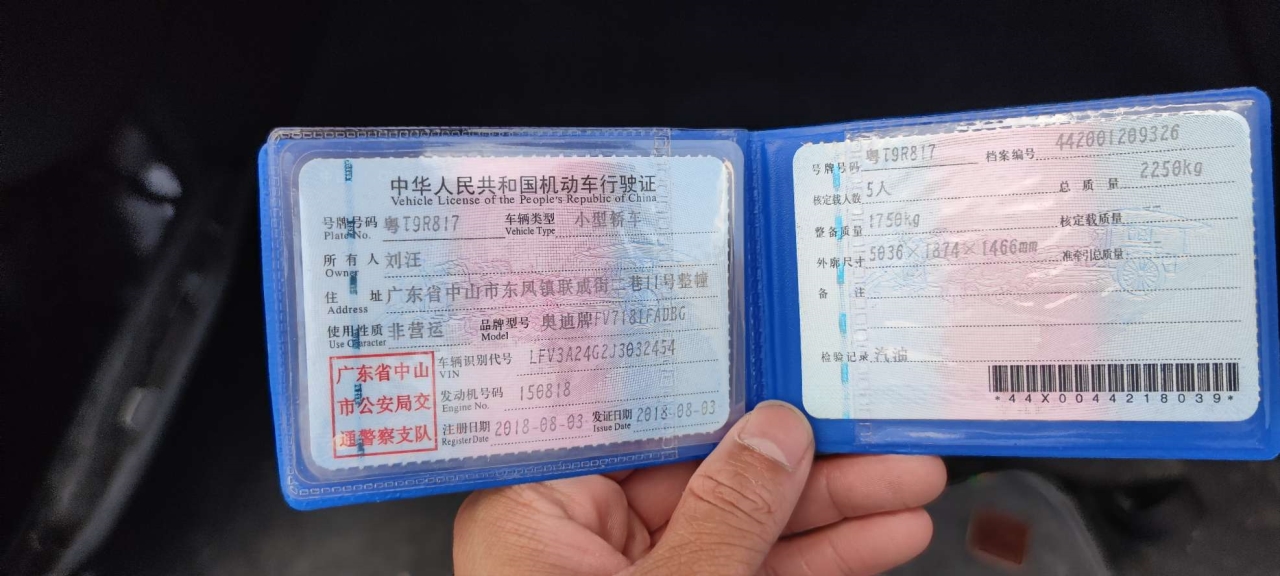 中华人民共和国机动车行驶证
Vehicle License of the People's Republic of China
号牌号码 粤T9R817 车辆类型 小型轿车
Plate No. Vehicle Type
所有人 刘汪
Owner
住址 广东省中山市东凤镇联成街二巷11号整幢
Address
使用性质 非营运 品牌型号 奥迪牌FV7181FADBG
Use Character Model
广东省中山
市公安局交
通警察支队
车辆识别代号 LFV3A24G2J3032454
VIN
发动机号码 156818
Engine No.
注册日期 2018-08-03 发证日期 2018-08-03
Register Date Issue Date
号牌号码 粤T9R817 档案编号 442001209326
核定载人数 5人 总质量 2250kg
整备质量 1750kg 核定载质量 --
外廓尺寸 5036×1874×1466mm 准牵引总质量 --
备注
检验记录 汽油
*44X0044218039*